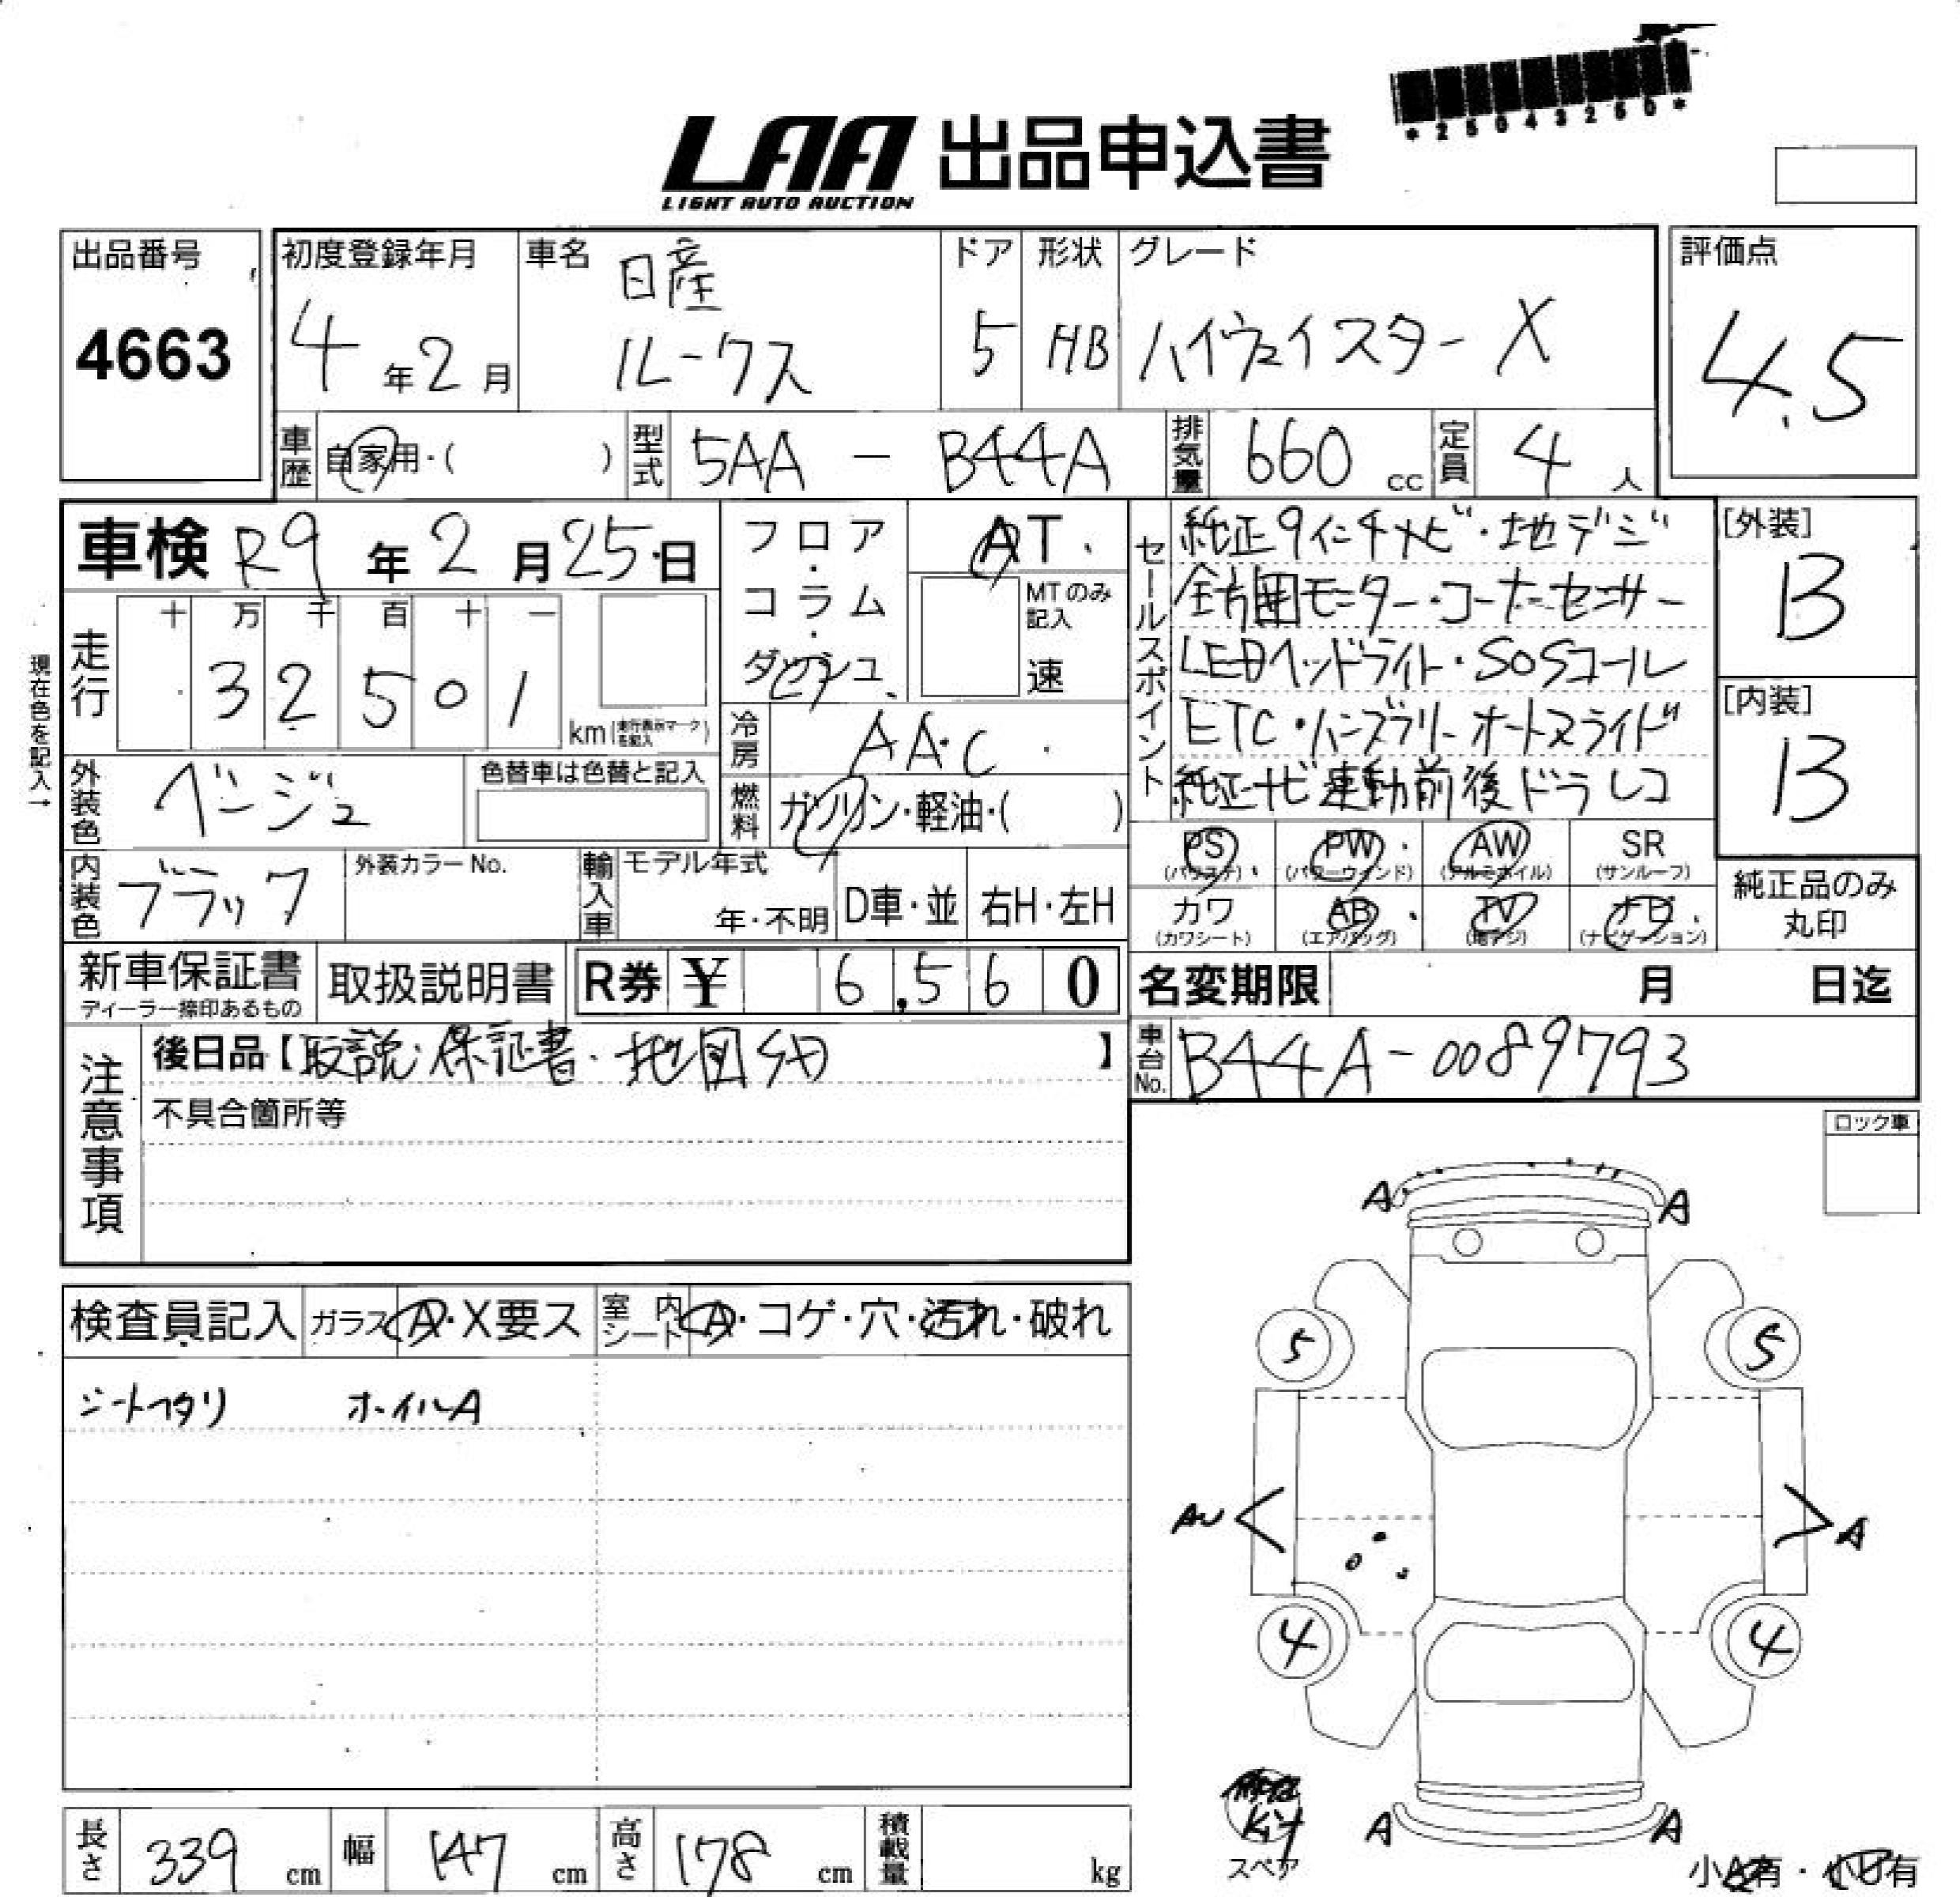 *25043250*
LAA 出品申込書
LIGHT AUTO AUCTION
出品番号
4663
初度登録年月
4年2月
車名
日産
ルークス
ドア
5
形状
HB
グレード
ハイウェイスター X
評価点
4.5
車歴
自家用・( )
型式
5AA - B44A
排気量
660 cc
定員
4 人
車検 R9年2月25日
フロア・コラム・ダッシュ
AT
MTのみ記入
速
セールスポイント
純正9インチナビ・地デジ
全方囲モニター・コーナーセンサー
LEDヘッドライト・SOSコール
ETC・ハンズフリーオートスライド
純正ナビ連動前後ドラレコ
[外装]
B
[内装]
B
現在色を記入→
走行
十 万 千 百 十 一
3 2 5 0 1
km(走行表示マークを記入)
冷房
AAC
燃料
ガソリン・軽油・( )
外装色
ベージュ
色替車は色替と記入
内装色
ブラック
外装カラーNo.
輸入車
モデル年式
年・不明
D車・並
右H・左H
PS
(パワステ)
PW
(パワーウインド)
AW
(アルミホイル)
SR
(サンルーフ)
カワ
(カワシート)
AB
(エアバッグ)
TV
(地デジ)
ナビ
(ナビゲーション)
純正品のみ
丸印
新車保証書
ディーラー捺印あるもの
取扱説明書
R券 ¥ 6,560
名変期限 月 日迄
車台No.
B44A-0089793
注意事項
後日品【取説・保証書・地図SD】
不具合箇所等
ロック車
検査員記入
ガラス
A・X要ス
室内シート
A・コゲ・穴・汚れ・破れ
シートヘタリ ホイルA
A A
5 5
AU A
4 4
A A
スペア
小A有・小U有
長さ
339 cm
幅
147 cm
高さ
178 cm
積載量
kg